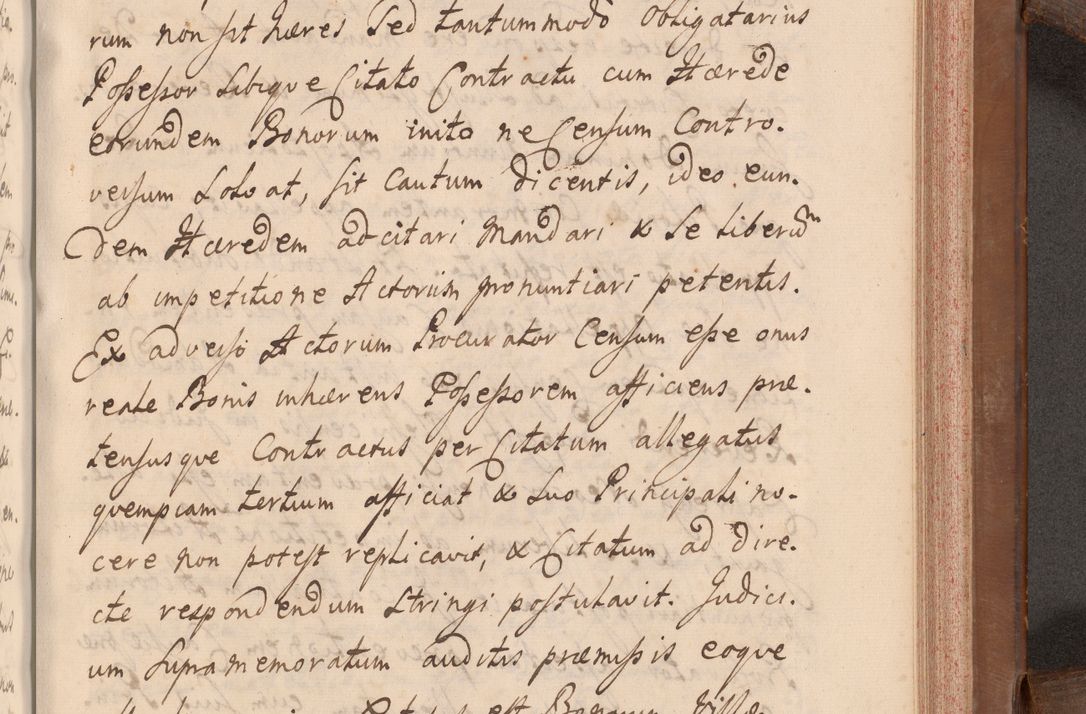 rum non sit hæres Sed tantummodo Obligatarius
Possessor Sibique Citato Contractu cum Hærede
eorundem Bonorum inito ne Censum Contro-
versum Solvat, sit Cautum dicentis, ideo eun-
dem Hæredem adcitari Mandari & Se liberũm
ab impetitione Actorum pronuntiari petentis.
Ex adverso Actorum Procurator Censum esse onus
reale Bonis inhærens Possessorem afficiens præ-
tensusque Contractus per Citatum allegatus
quempiam tertium afficiat & suo Principali no-
cere non potest replicavit, & Citatum ad dire-
cte respondendum Stringi postulavit. Judici-
um Supramemoratum auditis præmissis eoque
est Bonorum Villæ